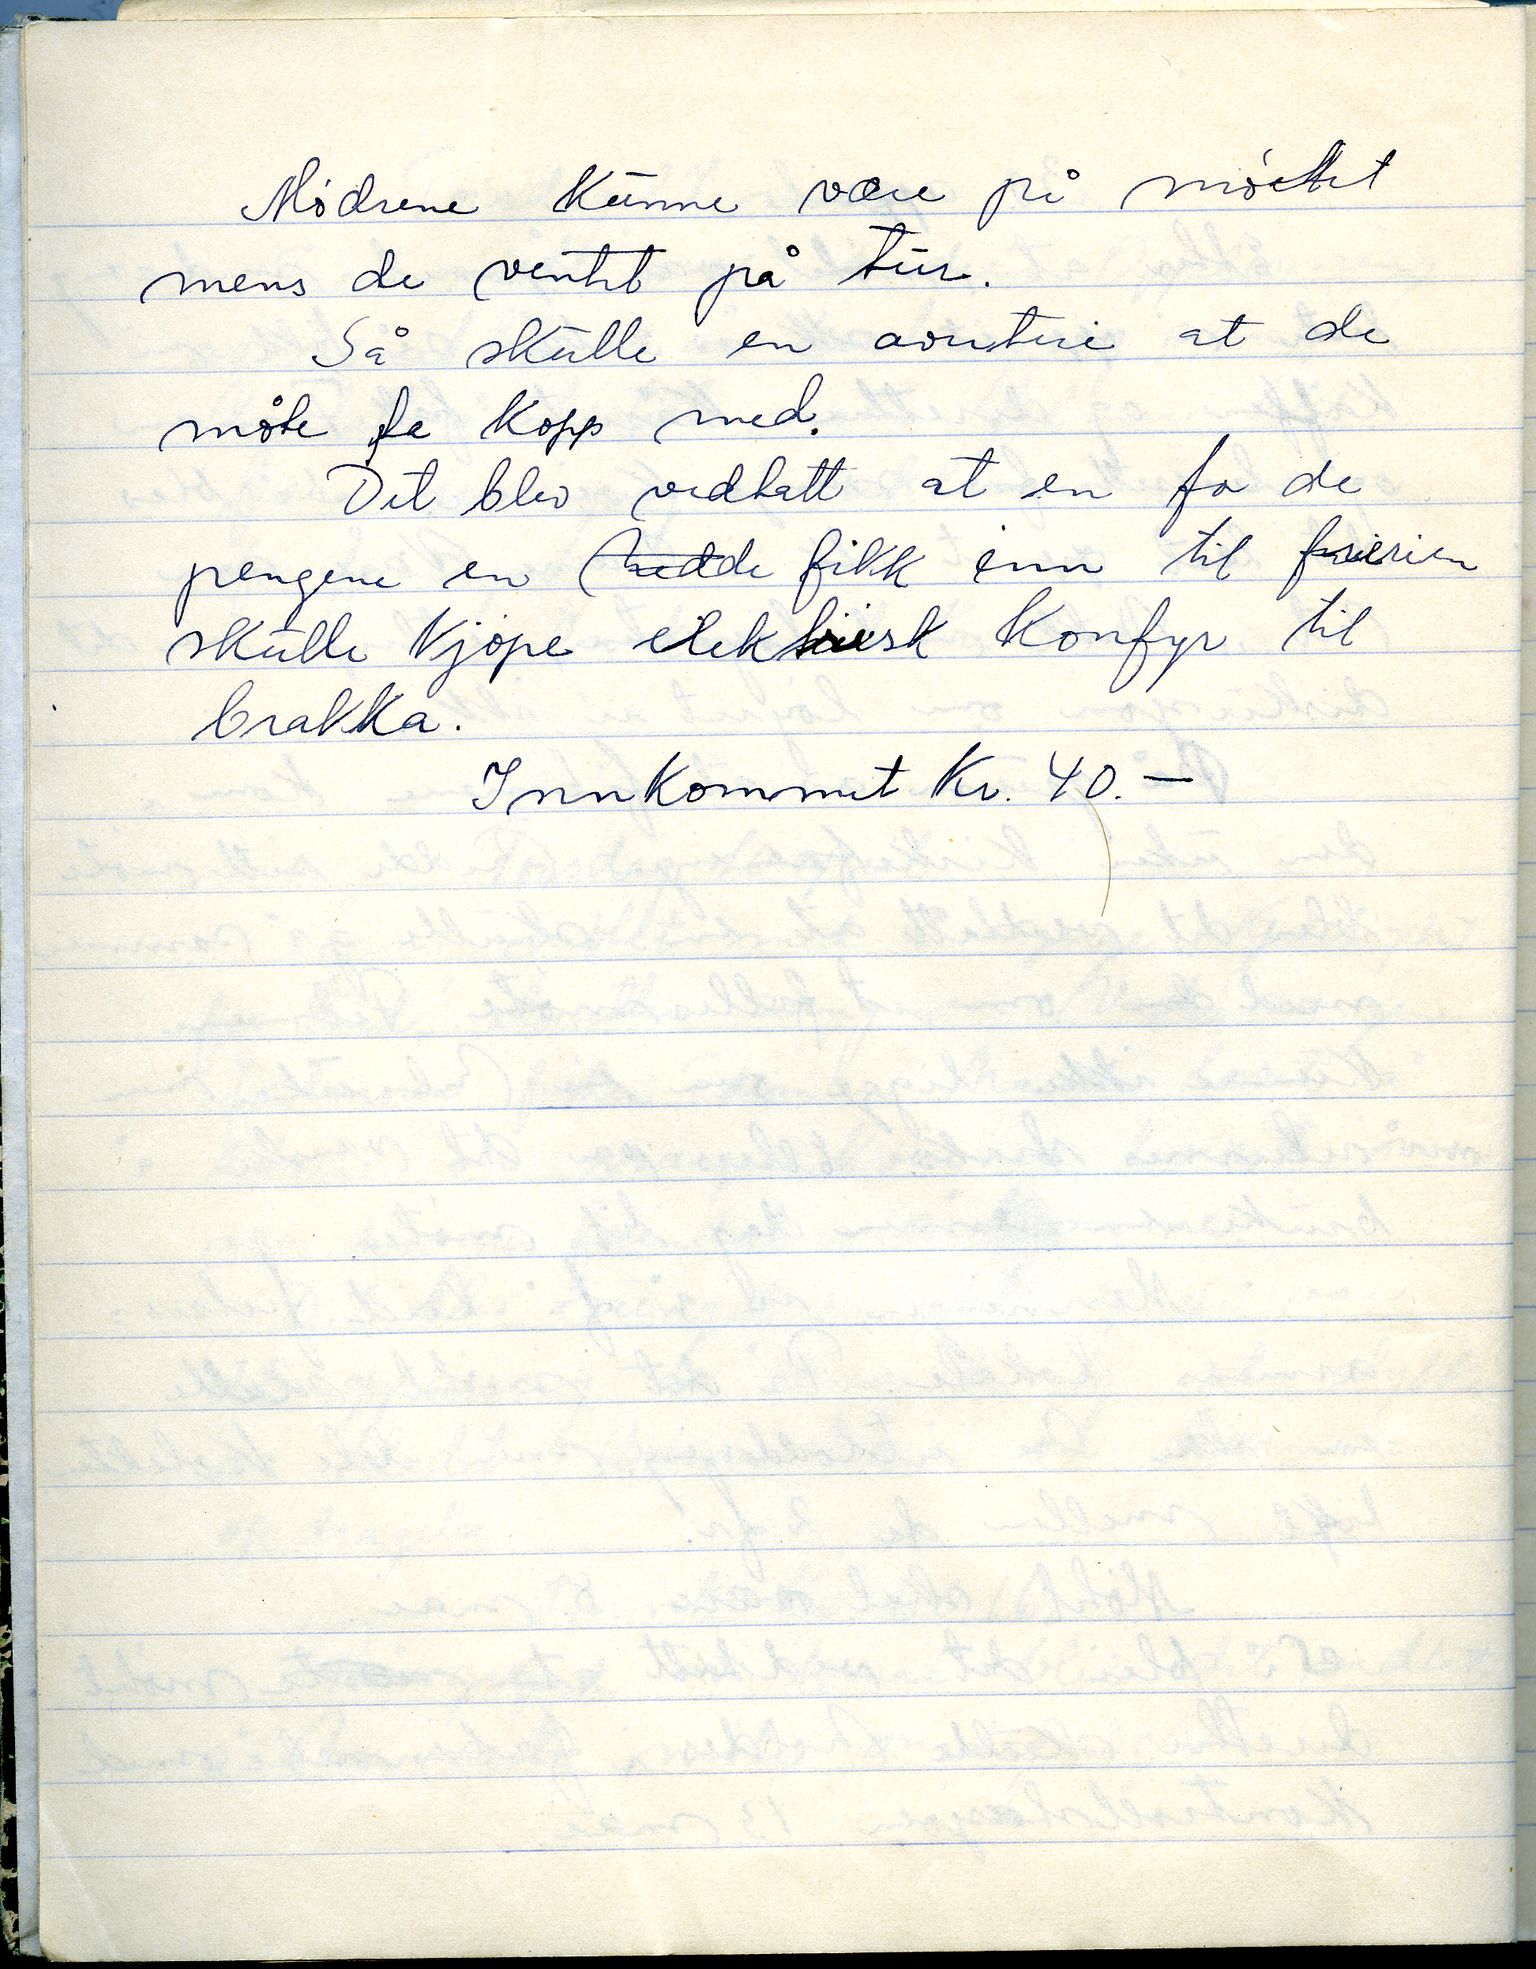 Mødrene kunne være på møtet
mens de ventet på tur.
Så skulle en avertere at de
måtte ta kopp med.
Det blev vedtatt at en for de
pengene en hadde fikk inn til
skulle kjøpe elektrisk konfyr til
brakka.
Innkommet Kr. 40.—